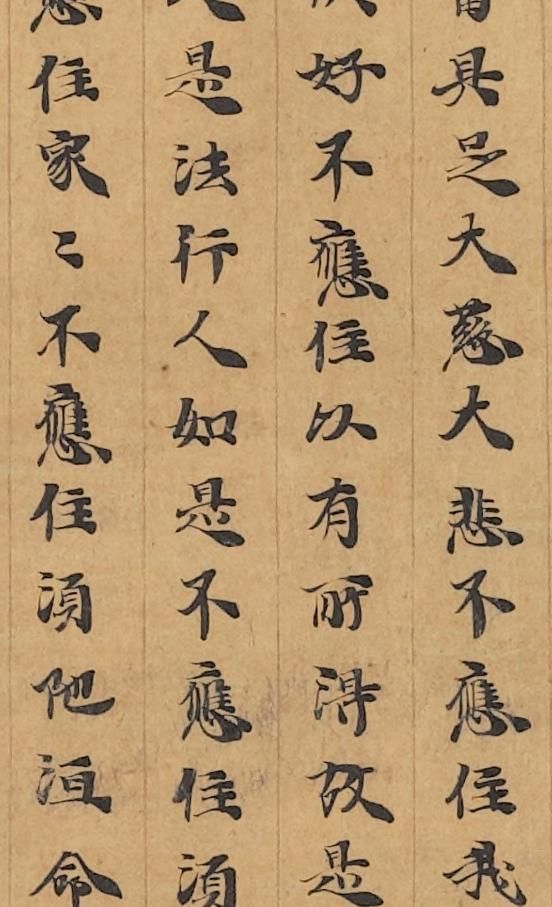 具足大慈大悲不應住我
好不應住以有所得故是
是法行人如是不應住須
應住家〻不應住須陁洹命